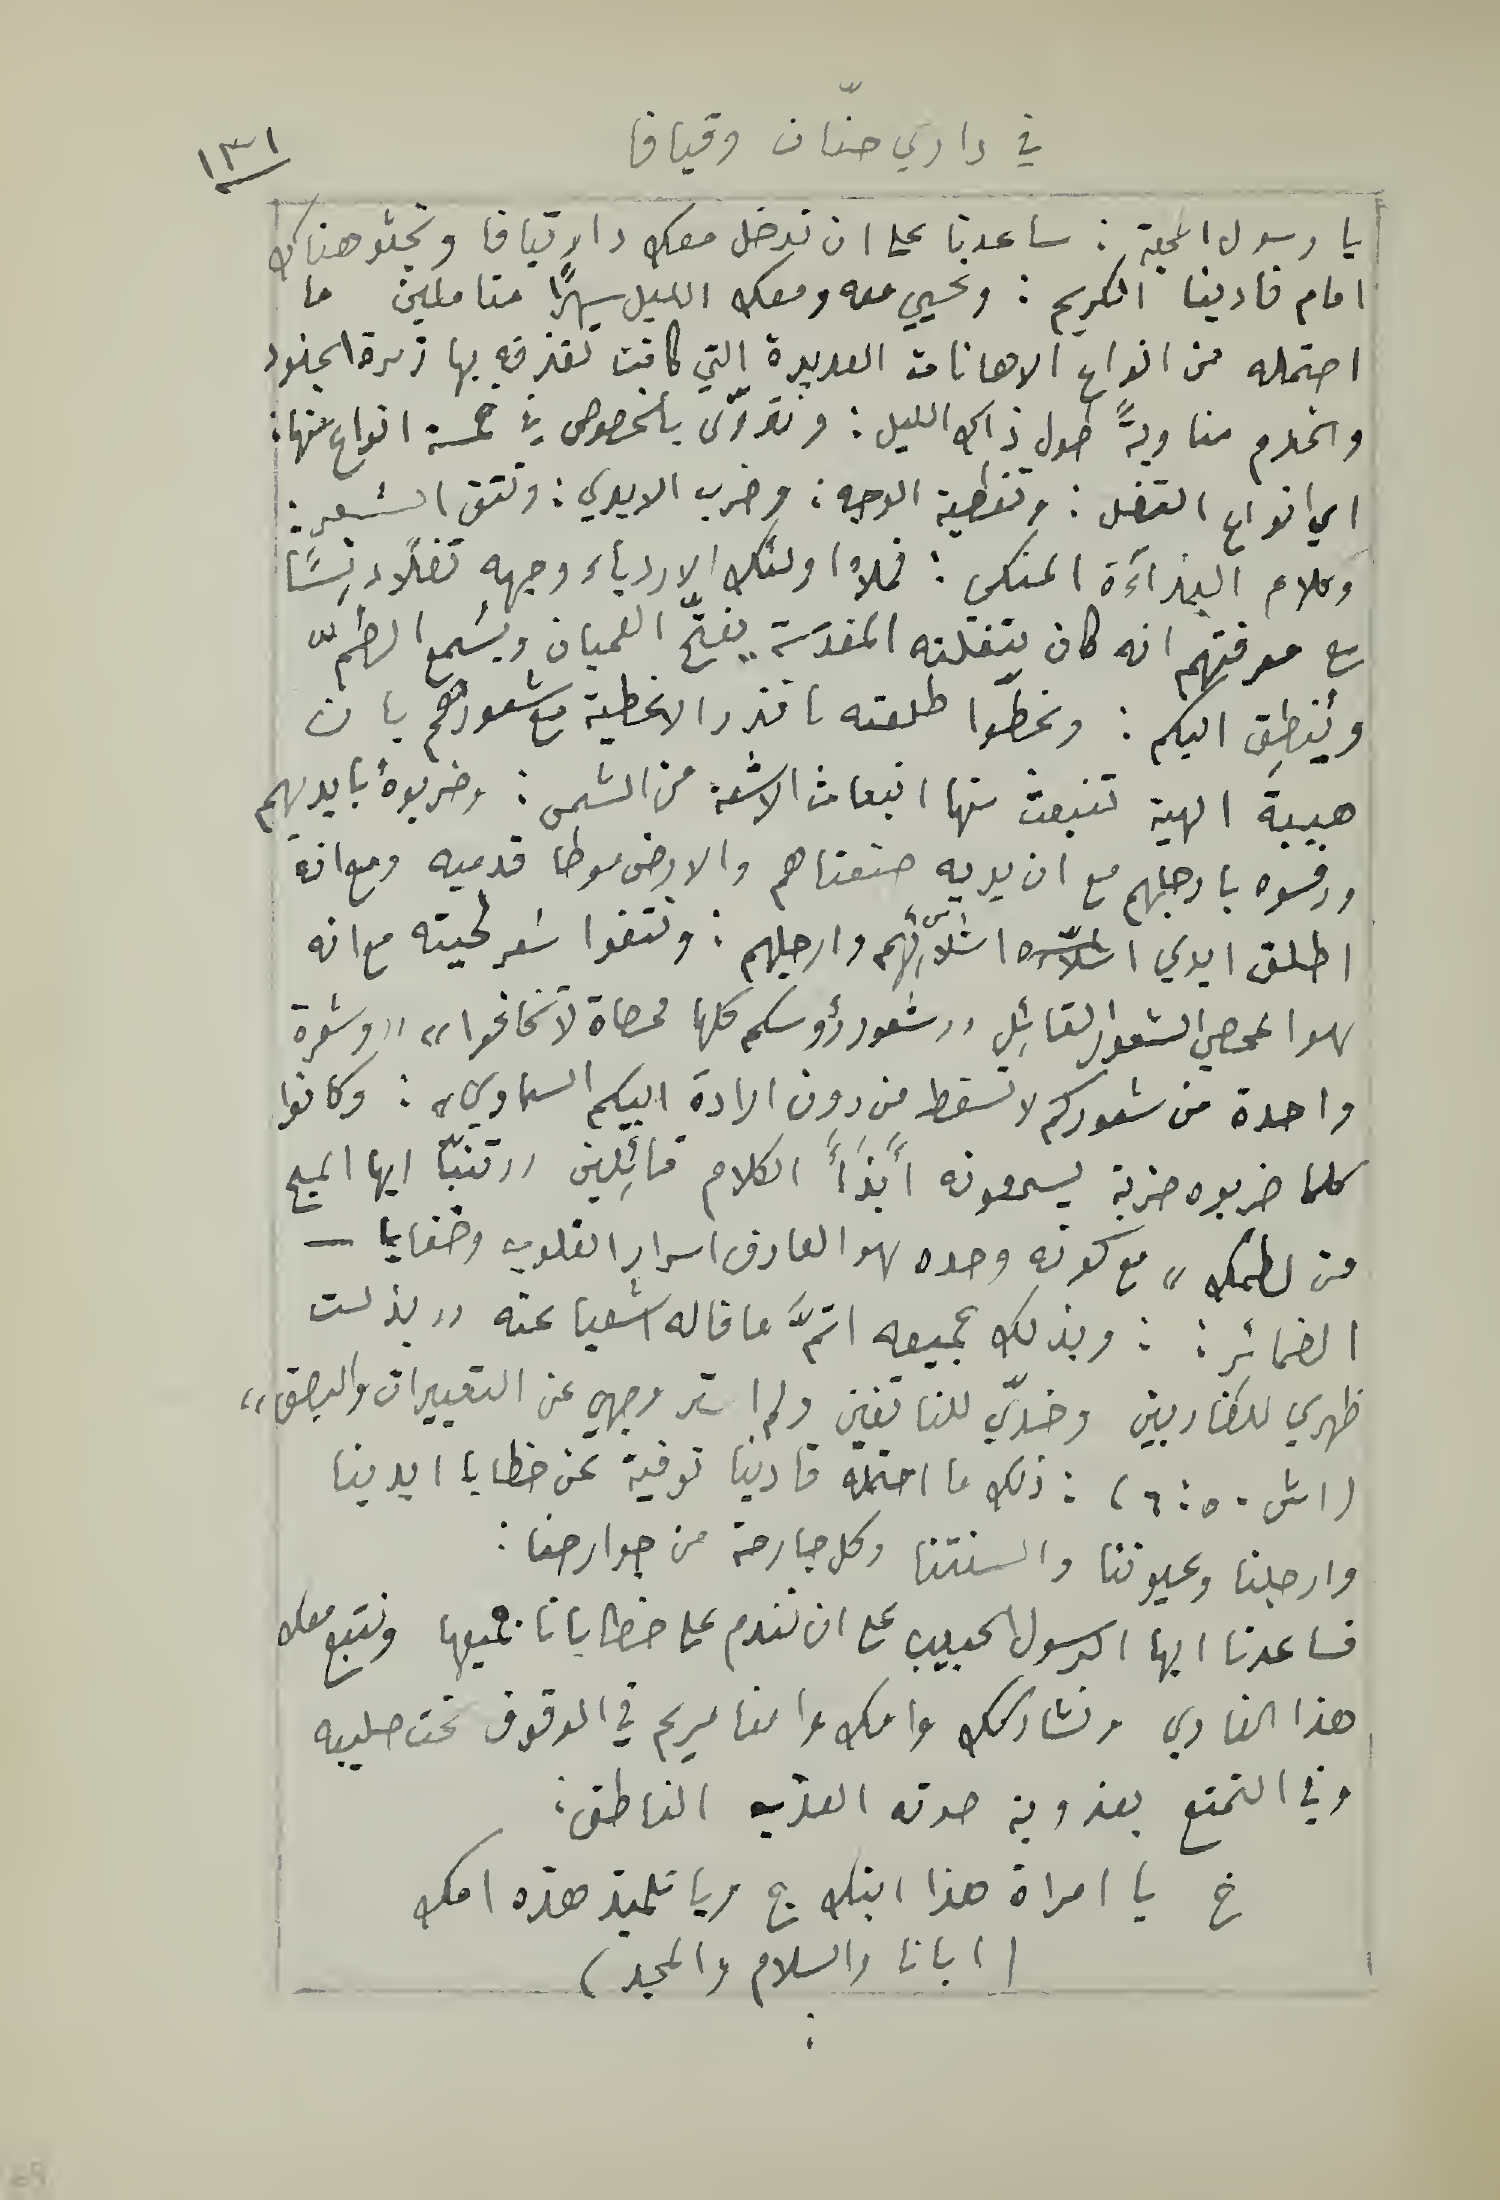 في داري حنّان وقيافا
١٣١
يا رسول المحبة : ساعدنا على ان ندخل معك دار قيافا ونجثو هناك
امام فادينا الكريم : ونحيي معه ومعك الليل سهرًا متاملين ما
احتمله من انواع الاهانات العديدة التي كانت تقذفه بها زمرة الجنود
والخدم مناوبةً طول ذاك الليل : ونتروّى بالخصوص في خمسة انواع منها :
اي انواع التفل : وتغطية الوجه : وضرب الايدي : ونتق الشعر :
وكلام البذآءة المنكى : فملاوا اولئك الاردياء وجهه تفلًا
مع معرفتهم انه كان بتفلته المقدسة يفتّح العميان ويسمع الصمّ
ويُنطِق البكم : وغطّوا طلعته باقذر الاغطية مع شعورهم بان
هيبةَ الهية تنبعث منها انبعاث الاشعة من الشمس : وضربوهُ بايديهم
ورفسوه بارجلهم مع ان يديه صنعتاهم والارض موطا قدميه ومع انه
اطلق ايدي اشلّائهم وارجلهم : ونتفوا شعر لحيته مع انه
هو المحصي الشعور القائِل «شعور رؤوسكم كلها محصاة لا تخافوا» «وشعرة
واحدة من شعوركم لا تسقط من دون ارادة ابيكم السماوي» : وكانوا
كلما ضربوه ضربة يسمعونه أَبذَأَ الكلام قائِلين «تنبّا ايها المسيح
من لطمك» مع كونه وحده هو العارف اسرار القلوب وخفايا —
الضمائر : وبذلك جميعه اتمَّ ما قاله اشعيا عنه «بذلت
ظهري للضاربين وخدّي للناتفين ولم استر وجهي عن التعييرات والبصق»
(اش ٥٠ : ٦) : ذلك ما احتمله فادينا توفية عن خطايا ايدينا
وارجلنا وعيوننا والسنتنا وكل جارحة من جوارحنا :
فساعدنا ايها الرسول الحبيب على ان نندم على خطايانا جميعها ونتبع معك
هذا الفادي ونشاركك وامك وامنا مريم في الوقوف تحت صليبه
وفي التمتع بعذوبة صوته العذب الناطق :
خ يا امراة هذا ابنك ج ويا تلميذ هذه امك
(ابانا والسلام والمجد)